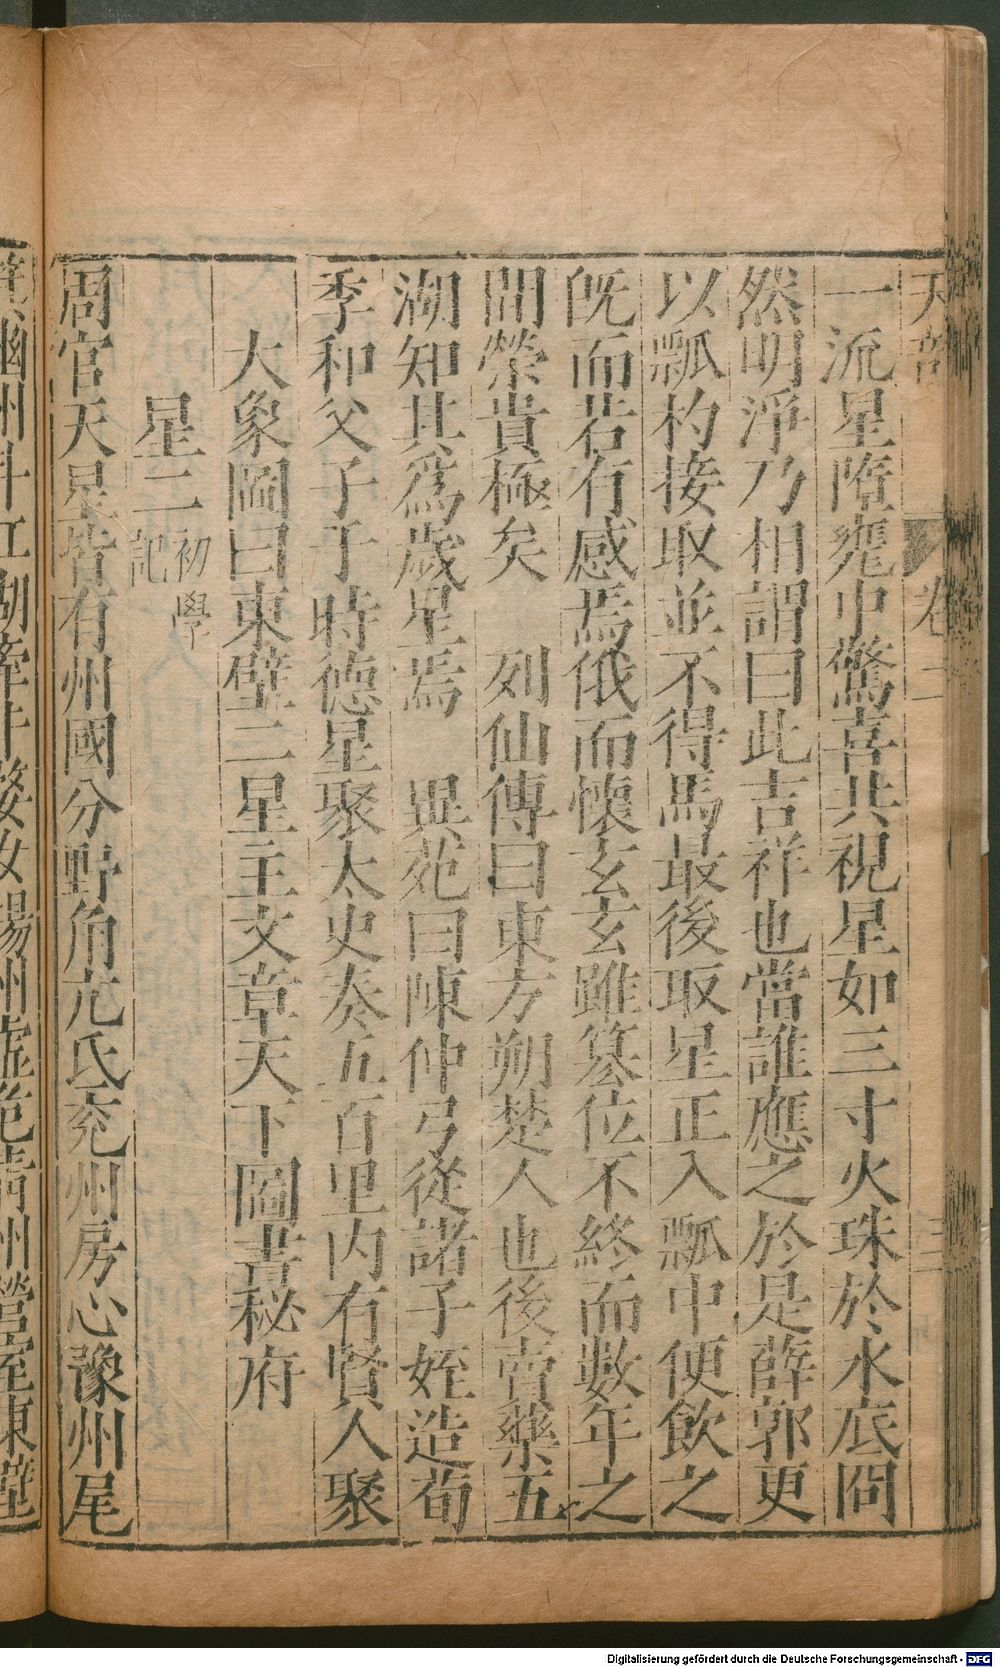 天部 卷二 三
一流星隋甕中驚喜共視星如三寸火珠於水底冏
然明淨乃相謂曰此吉祥也當誰應之於是薛郭更
以瓢杓接取並不得馬最後取星正入瓢中便飲之
既而若有感焉俄而懷玄玄雖簒位不終而數年之
間榮貴極矣 列仙傳曰東方朔楚人也後賣藥五
湖知其爲歲星焉 異苑曰陳仲弓從諸子姪造荀
季和父子于時德星聚太史奏五百里内有賢人聚
大象圖曰東壁二星主文章天下圖書秘府
星二初學記
周官天星皆有州國分野角亢氐兖州房心豫州尾
箕幽州斗江湖牽牛婺女揚州虚危青州營室東壁
Digitalisierung gefördert durch die Deutsche Forschungsgemeinschaft - DFG